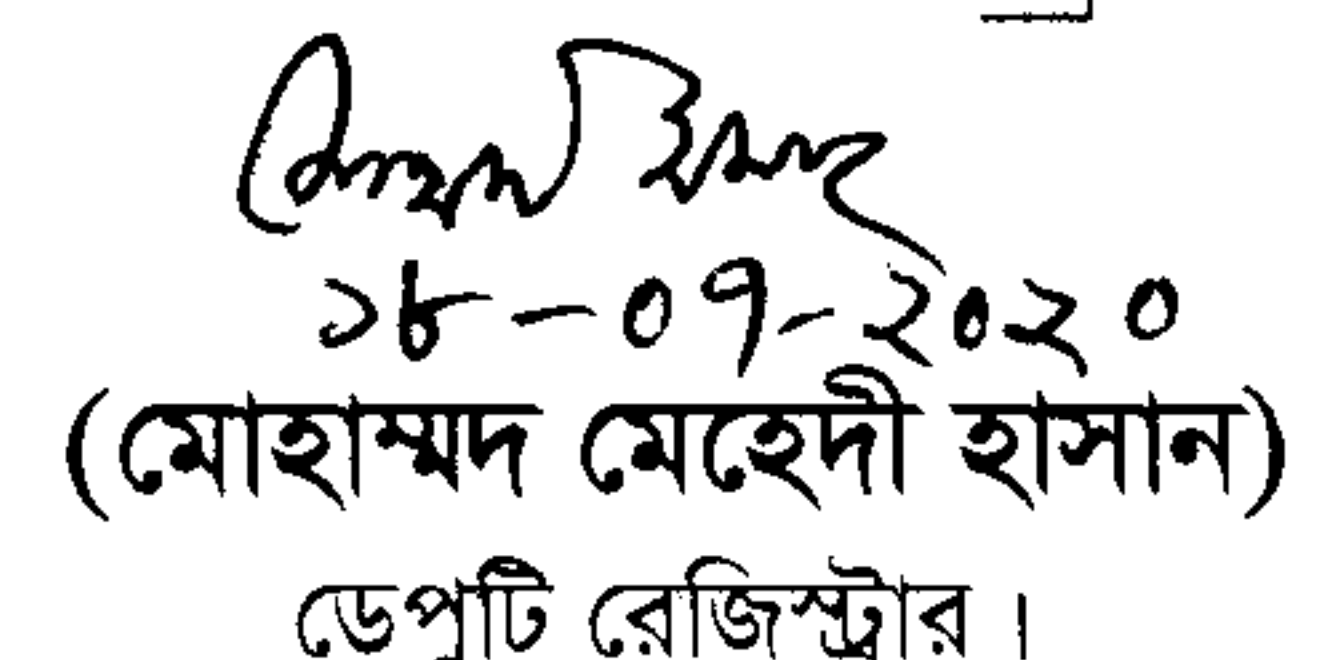 ১৮-০৭-২০২০
(মোহাম্মদ মেহেদী হাসান)
ডেপুটি রেজিস্ট্রার ।